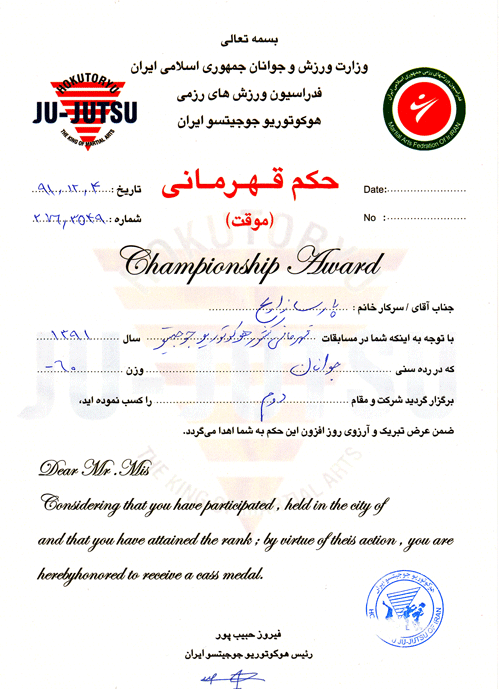 بسمه تعالی
وزارت ورزش و جوانان جمهوری اسلامی ایران
فدراسیون ورزش های رزمی
هوکوتوریو جوجیتسو ایران
HOKUTORYU
JU-JUTSU
THE KING OF MARTIAL ARTS
فدراسیون ورزشهای رزمی جمهوری اسلامی ایران
Martial Arts Fedration Of IR IRAN
حکم قهرمانی
(موقت)
تاریخ: ۹۱,۱۲,۴
شماره: ۲۷۶,۳۵۴۹
Date:
No :
Championship Award
جناب آقای / سرکار خانم :
با توجه به اینکه شما در مسابقات قهرمانی کشور هوکوتوریو جوجیتسو سال ۱۳۹۱
که در رده سنی جوانان وزن ۶۰-
برگزار گردید شرکت و مقام دوم را کسب نموده اید،
ضمن عرض تبریک و آرزوی روز افزون این حکم به شما اهدا می‌گردد.
Dear Mr .Mis
Considering that you have participated , held in the city of
and that you have attained the rank ; by virtue of theis action , you are
herebyhonored to receive a cass medal.
فیروز حبیب پور
رئیس هوکوتوریو جوجیتسو ایران
هوکوتوریو جوجیتسو ایران
JU-JUTSU OF IRAN